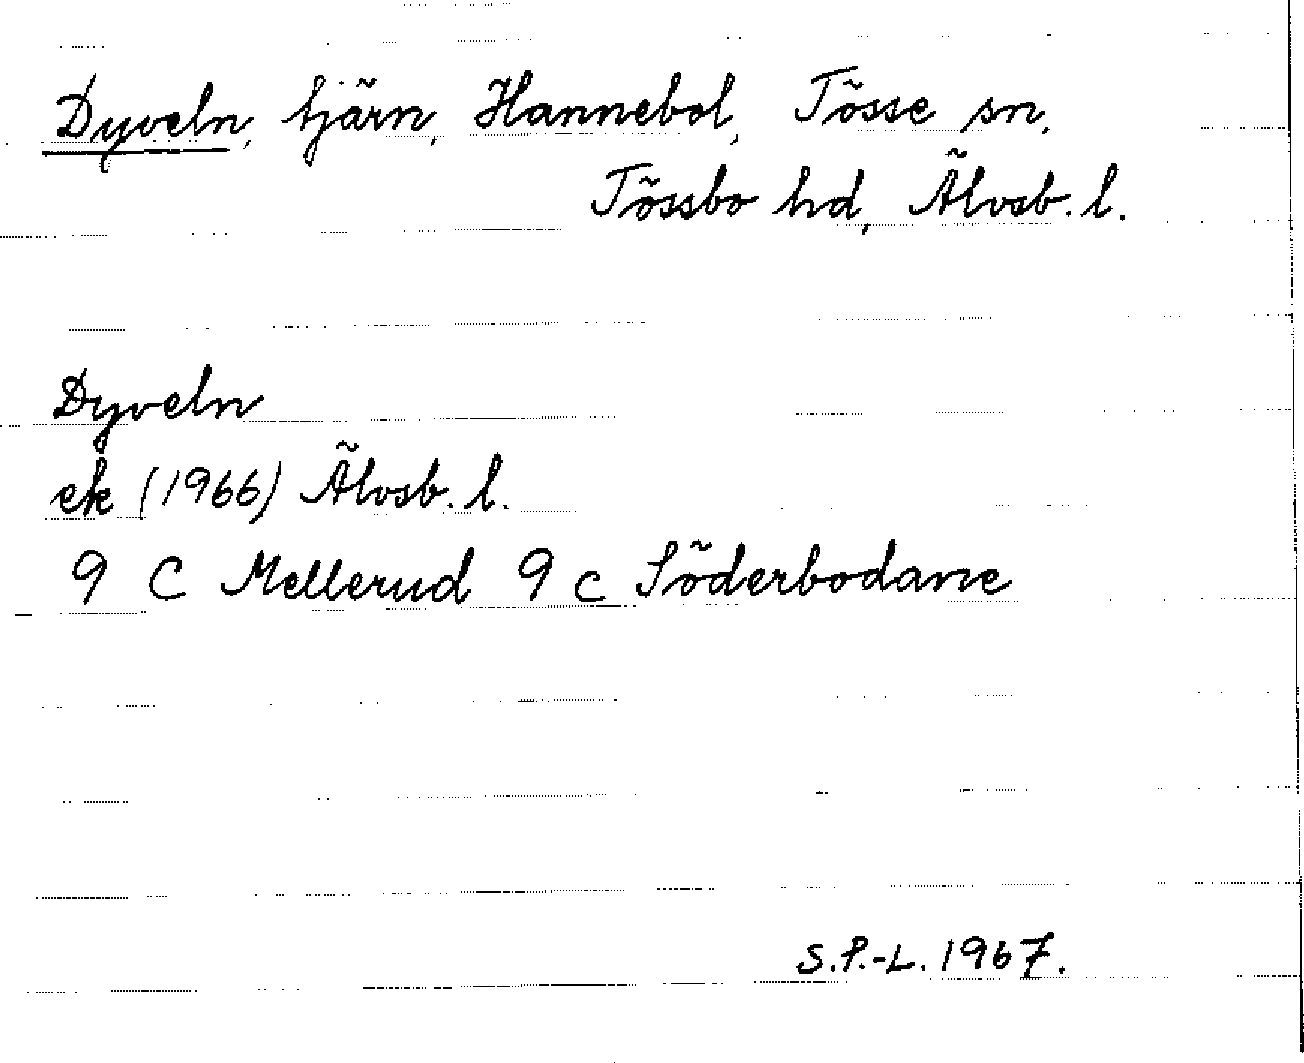 Dyveln, tjärn, Hannebol, Tösse sn,
Tössbo hd, Älvsb. l.
Dyveln
ek (1966) Älvsb. l.
9 C Mellerud 9 c Söderbodane
S.P.-L. 1967.